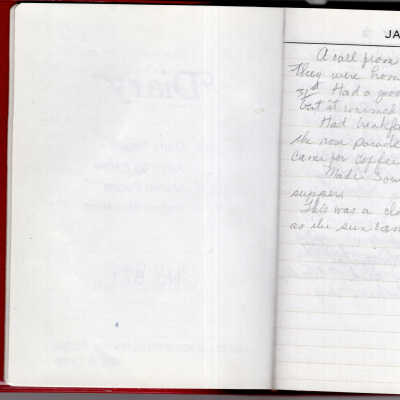 JA
A call from
they were hom
31st Had a goo
but it rained
Had breakfa
the rose parade
came for coffee
Made som
supper.
This was a clo
as the sun cam